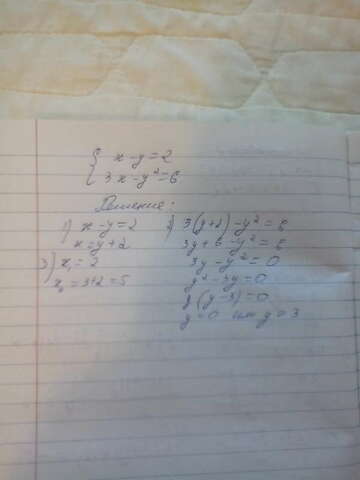 { x - y = 2
3x - y² = 6
Решение:
1) x - y = 2
x = y + 2
2) 3(y+2) - y² = 6
3y + 6 - y² = 6
3y - y² = 0
y² - 3y = 0
y(y - 3) = 0
y = 0 или y = 3
3) x₁ = 2
x₂ = 3+2 = 5